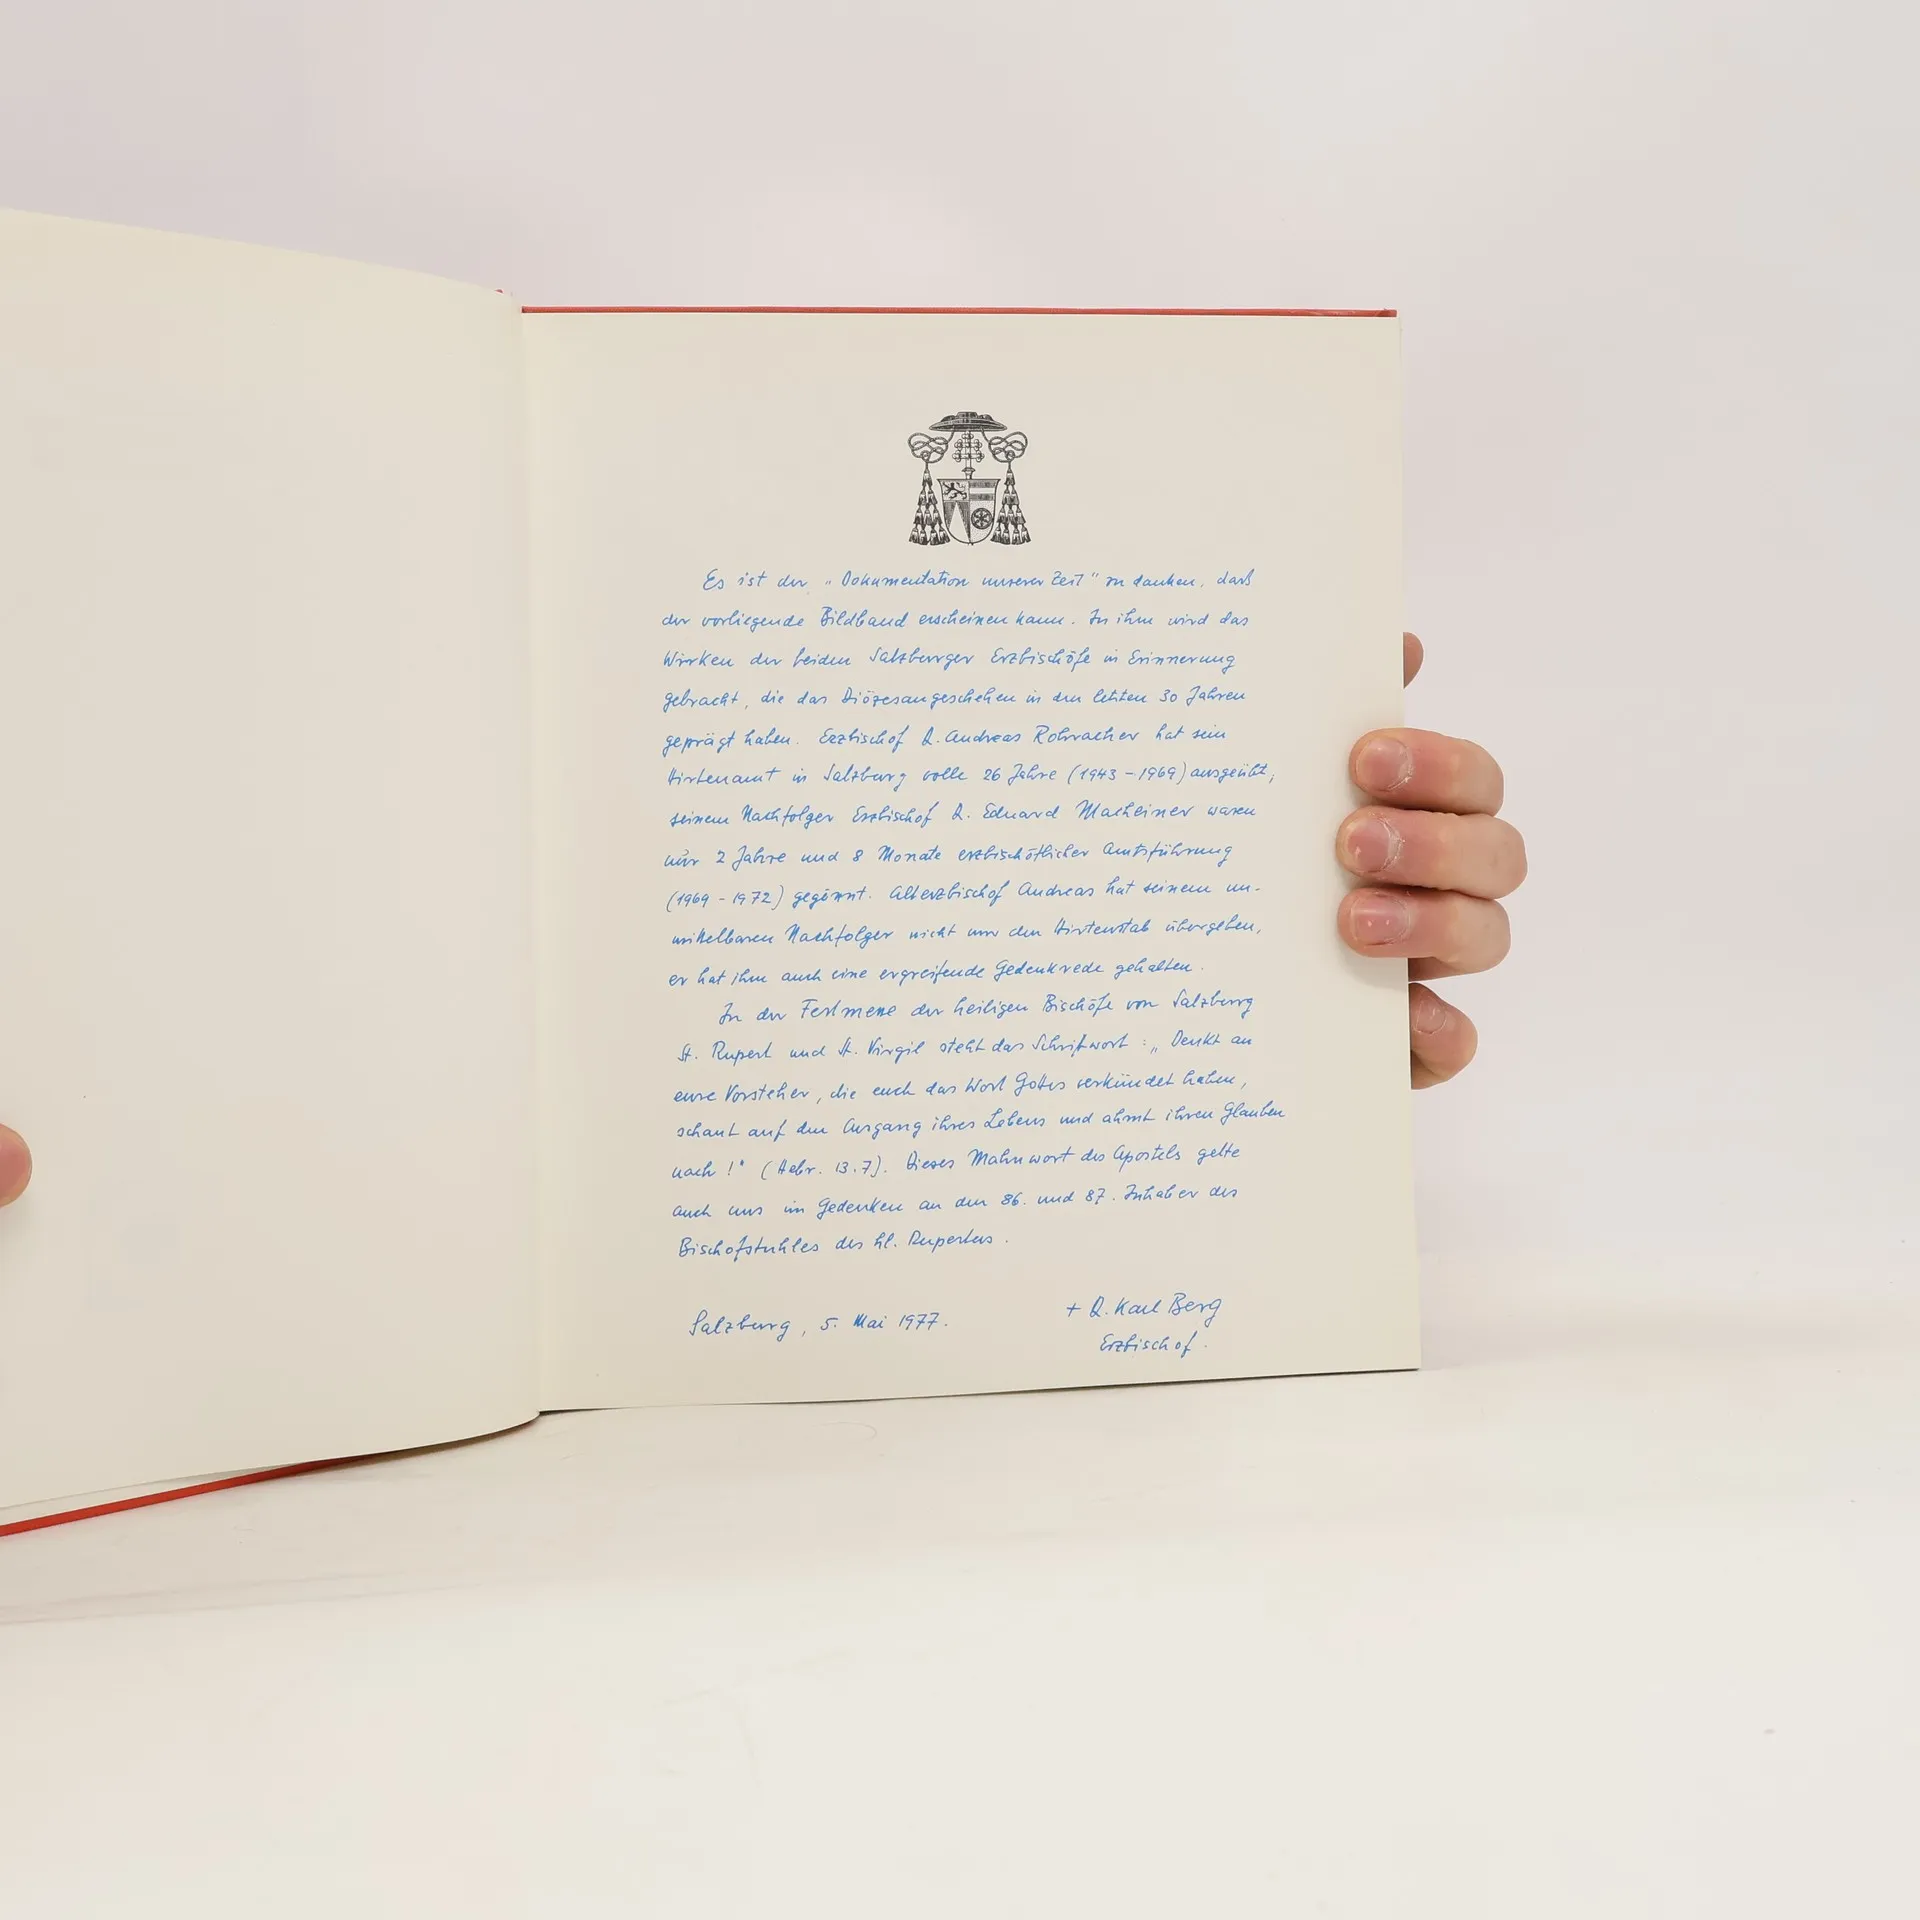 Es ist der „Dokumentation unserer Zeit" zu danken, daß
der vorliegende Bildband erscheinen kann. In ihm wird das
Wirken der beiden Salzburger Erzbischöfe in Erinnerung
gebracht, die das Diözesangeschehen in den letzten 30 Jahren
geprägt haben. Erzbischof D. Andreas Rohracher hat sein
Hirtenamt in Salzburg volle 26 Jahre (1943 - 1969) ausgeübt;
seinem Nachfolger Erzbischof D. Eduard Macheiner waren
nur 2 Jahre und 8 Monate erzbischöflicher Amtsführung
(1969 - 1972) gegönnt. Alterzbischof Andreas hat seinem un-
mittelbaren Nachfolger nicht nur den Hirtenstab übergeben,
er hat ihm auch eine ergreifende Gedenkrede gehalten.
In der Festmesse der heiligen Bischöfe von Salzburg
St. Rupert und St. Virgil steht das Schriftwort: „Denkt an
eure Vorsteher, die euch das Wort Gottes verkündet haben,
schaut auf den Ausgang ihres Lebens und ahmt ihren Glauben
nach!" (Hebr. 13.7). Dieses Mahnwort des Apostels gelte
auch uns im Gedenken an den 86. und 87. Inhaber des
Bischofstuhles des hl. Rupertus.
Salzburg, 5. Mai 1977.
+ D. Karl Berg
Erzbischof.